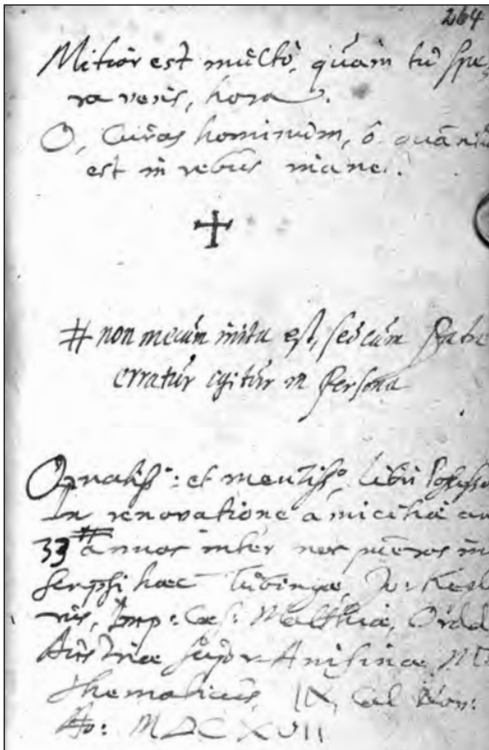 264
Mitior est multò, quàm tu spe,
ra veris, hora.
O, curas hominum, ô quantū
est in rebus inane.
# non mecum inita est, sed cum fratre
erratur igitur in Persona
Ornatiss: et
In renovatione amicitiae an
33 annos inter nos
scripsi haec Tubingae, Jo: Kepl
Imp: Caes: Matthiae, Ordd
Austriae supr-Anisinae M
thematicus, IX, Cal Nov:
Ao: MDCXVII